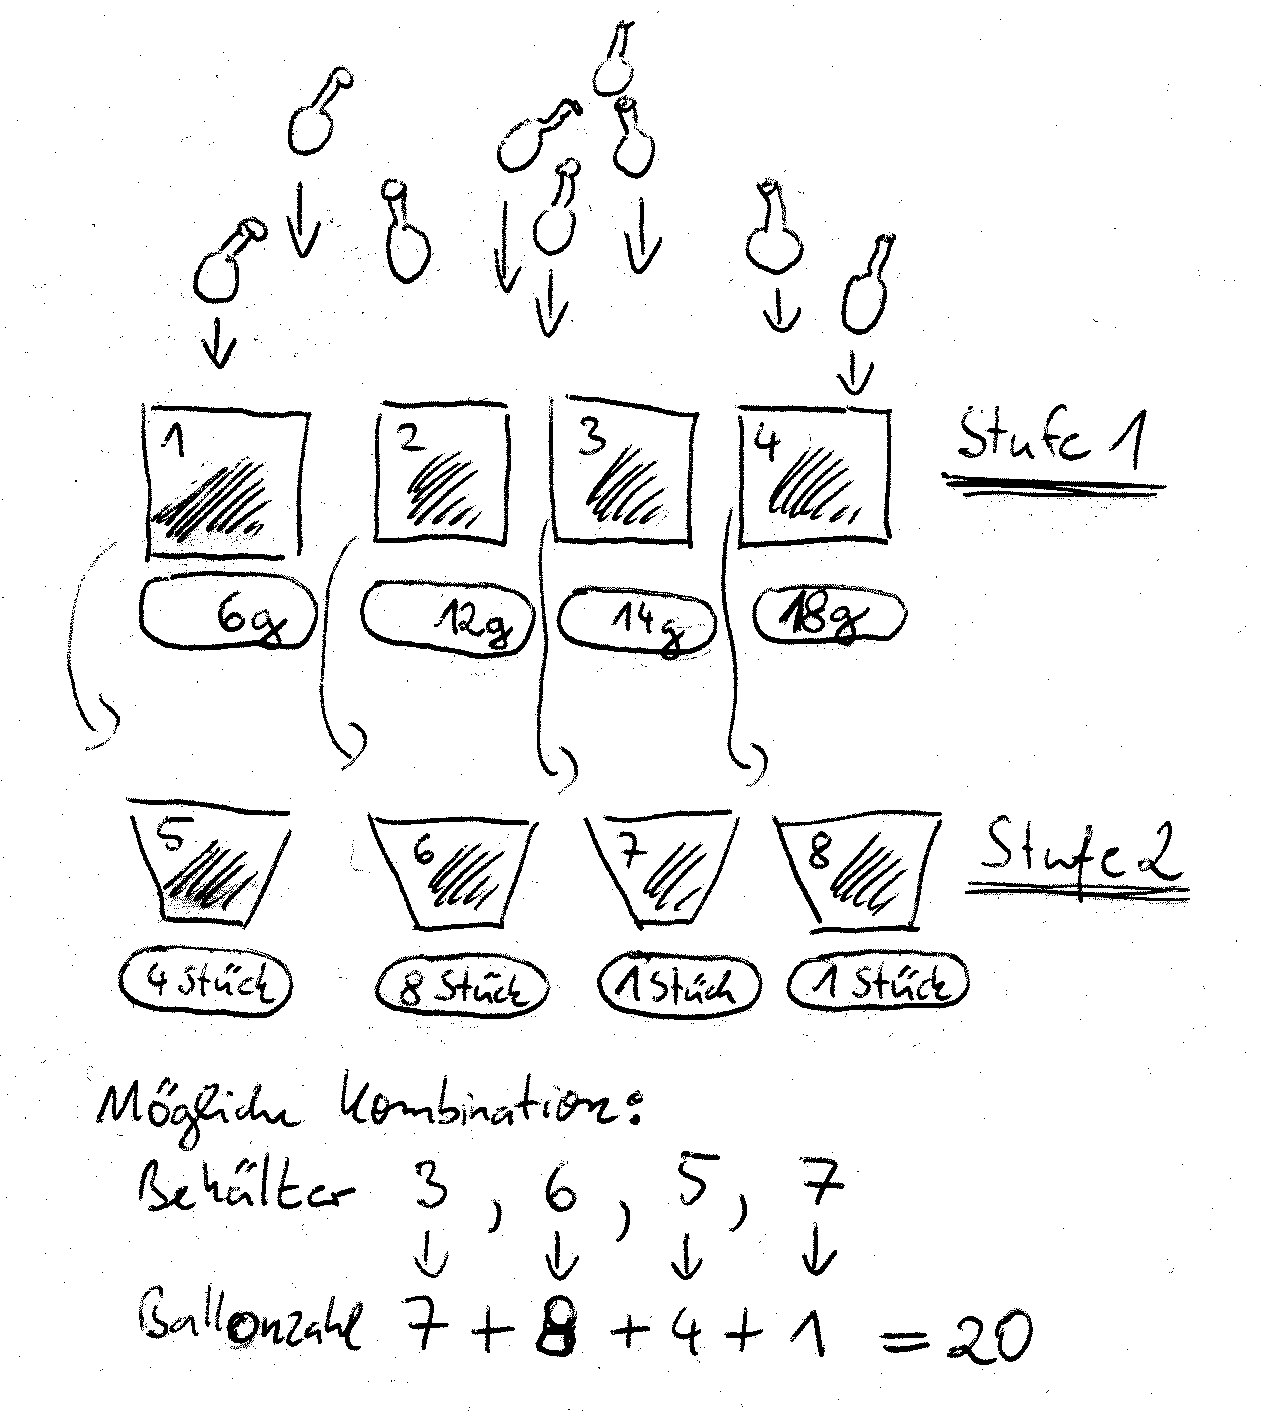 1 2 3 4 Stufe 1
6g 12g 14g 18g
5 6 7 8 Stufe 2
4 Stück 8 Stück 1 Stück 1 Stück
Mögliche Kombination:
Behälter 3 , 6 , 5 , 7
Ballonzahl 7 + 8 + 4 + 1 = 20